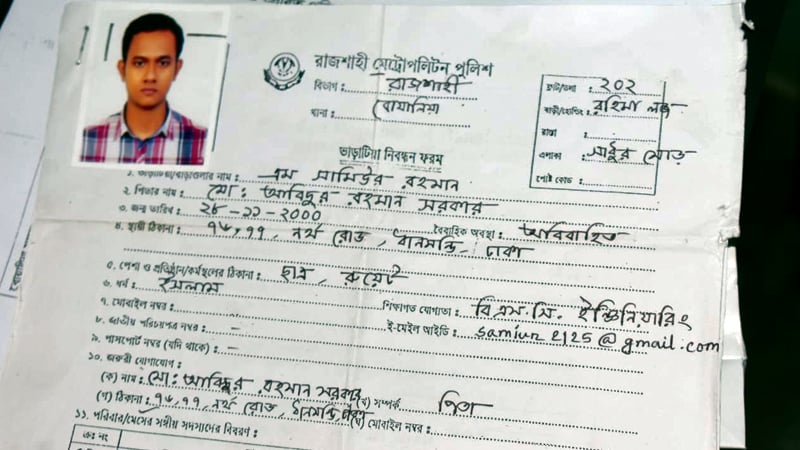 রাজশাহী মেট্রোপলিটন পুলিশ
বিভাগ : রাজশাহী
থানা : বোয়ালিয়া
ফ্ল্যাট/তলা : ২০২
বাড়ী/হোল্ডিং : রহিমা লজ
রাস্তা :
এলাকা : সাধুর মোড়
পোষ্ট কোড :
ভাড়াটিয়া নিবন্ধন ফরম
১. ভাড়াটিয়া/বাড়ীওলার নাম : এম সামিউর রহমান
২. পিতার নাম : মো: আবিদুর রহমান সরকার
৩. জন্ম তারিখ : ২৮-১১-২০০০ বৈবাহিক অবস্থা : অবিবাহিত
৪. স্থায়ী ঠিকানা : ৭৬,৭৭, নর্থ রোড, ধানমন্ডি, ঢাকা
৫. পেশা ও প্রতিষ্ঠান/কর্মস্থলের ঠিকানা : ছাত্র, রুয়েট
৬. ধর্ম : ইসলাম শিক্ষাগত যোগ্যতা : বি.এস.সি. ইঞ্জিনিয়ারিং
৭. মোবাইল নম্বর : ই-মেইল আইডি : samiur2125@gmail.com
৮. জাতীয় পরিচয়পত্র নম্বর : -
৯. পাসপোর্ট নম্বর (যদি থাকে) : -
১০. জরুরী যোগাযোগ :
(ক) নাম : মো: আবিদুর রহমান সরকার (খ) সম্পর্ক পিতা
(গ) ঠিকানা : ৭৬,৭৭, নর্থ রোড, ধানমন্ডি, ঢাকা (ঘ) মোবাইল নম্বর :
১১. পরিবার/মেসের সঙ্গীয় সদস্যদের বিবরণ :
ক্রঃ নং